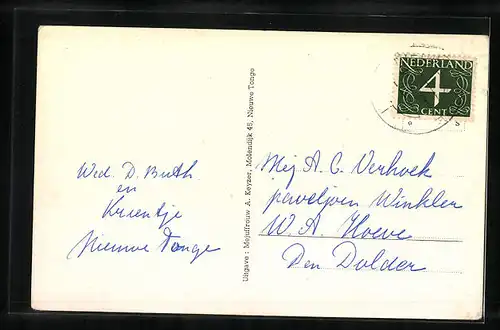 NEDERLAND
4
CENT
Wed. D. Buth
en
Krientje
Nieuwe Tonge
Uitgave: Mejuffrouw A. Keyzer, Molendijk 45, Nieuwe Tonge
Mej A. C. Verhoek
paveljoen Winkler
W. A. Hoeve
Den Dolder